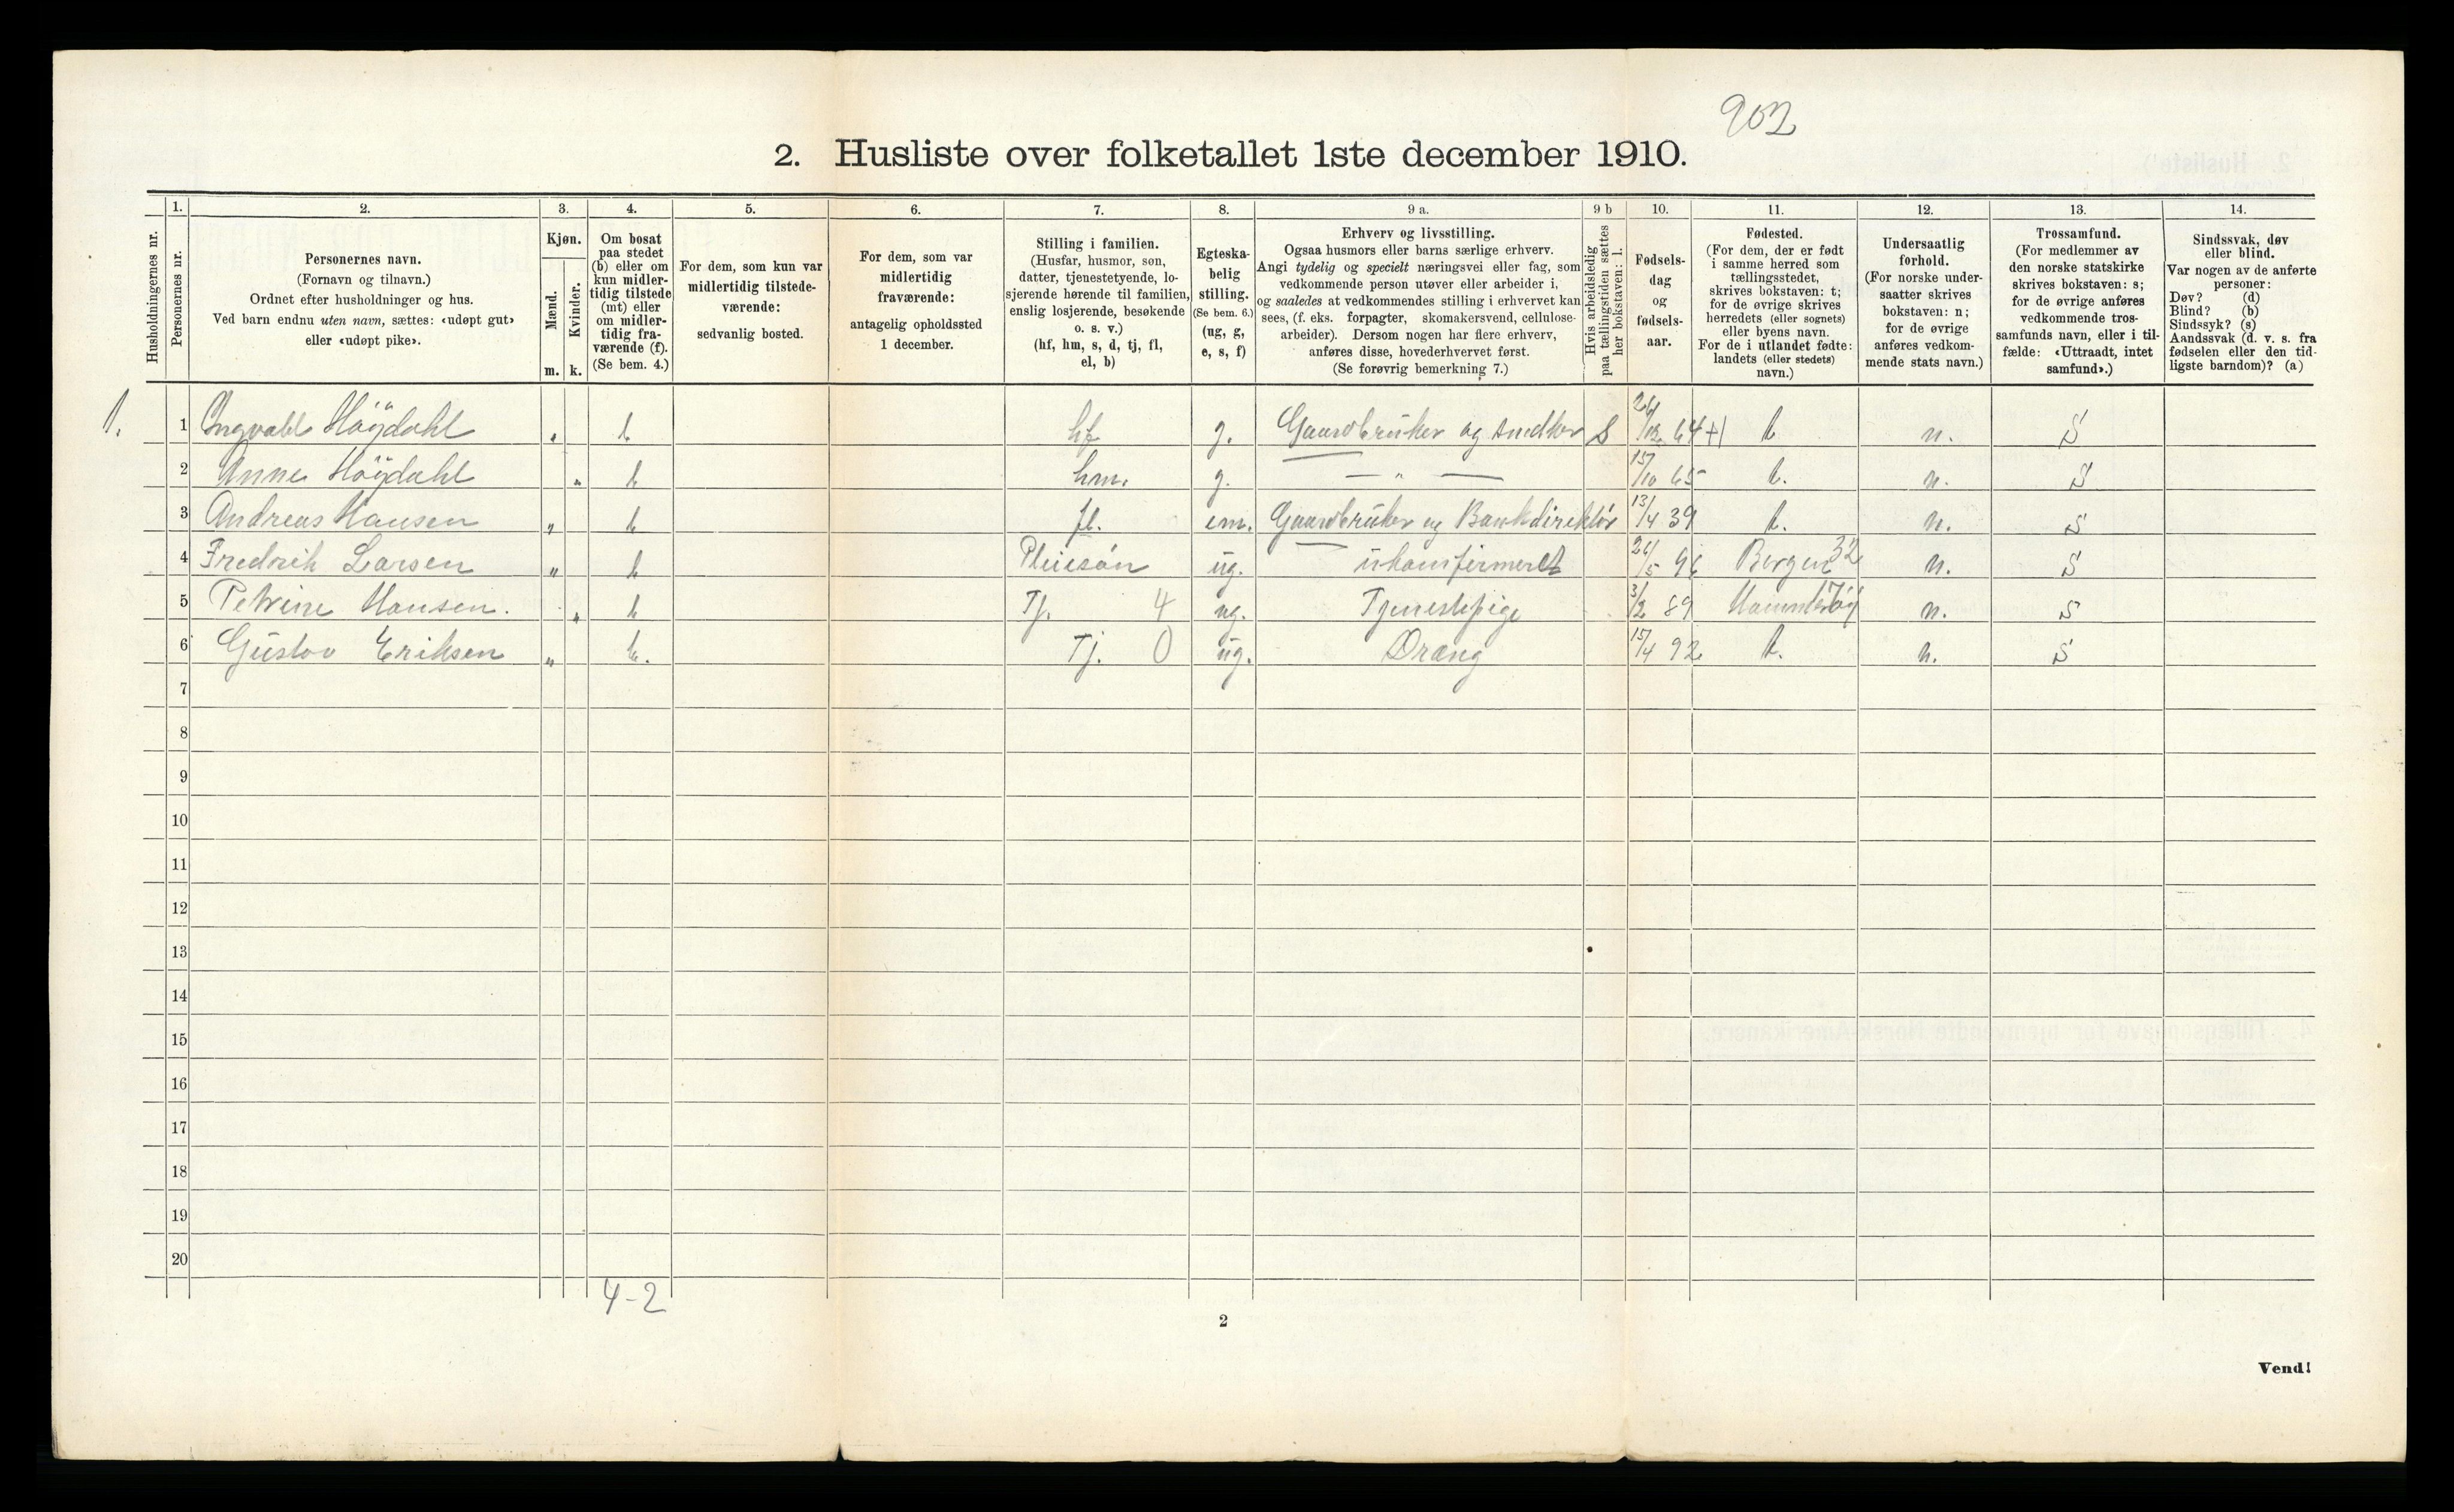 902
2. Husliste over folketallet 1ste december 1910.
Husholdningernes nr.
1. Personernes nr.
2. Personernes navn. (Fornavn og tilnavn.) Ordnet efter husholdninger og hus. Ved barn endnu uten navn, sættes: «udøpt gut» eller «udøpt pike».
3. Kjøn. Mænd. m. Kvinder. k.
4. Om bosat paa stedet (b) eller om kun midlertidig tilstede (mt) eller om midlertidig fraværende (f). (Se bem. 4.)
5. For dem, som kun var midlertidig tilstedeværende: sedvanlig bosted.
6. For dem, som var midlertidig fraværende: antagelig opholdssted 1 december.
7. Stilling i familien. (Husfar, husmor, søn, datter, tjenestetyende, losjerende hørende til familien, enslig losjerende, besøkende o. s. v.) (hf, hm, s, d, tj, fl, el, b)
8. Egteskabelig stilling. (Se bem. 6.) (ug, g, e, s, f)
9 a. Erhverv og livsstilling. Ogsaa husmors eller barns særlige erhverv. Angi tydelig og specielt næringsvei eller fag, som vedkommende person utøver eller arbeider i, og saaledes at vedkommendes stilling i erhvervet kan sees, (f. eks. forpagter, skomakersvend, cellulosearbeider). Dersom nogen har flere erhverv, anføres disse, hovederhvervet først. (Se forøvrig bemerkning 7.)
9 b Hvis arbeidsledig paa tællingstiden sættes her bokstaven: l.
10. Fødselsdag og fødselsaar.
11. Fødested. (For dem, der er født i samme herred som tællingsstedet, skrives bokstaven: t; for de øvrige skrives herredets (eller sognets) eller byens navn. For de i utlandet fødte: landets (eller stedets) navn.)
12. Undersaatlig forhold. (For norske undersaatter skrives bokstaven: n; for de øvrige anføres vedkommende stats navn.)
13. Trossamfund. (For medlemmer av den norske statskirke skrives bokstaven: s; for de øvrige anføres vedkommende trossamfunds navn, eller i tilfælde: «Uttraadt, intet samfund».)
14. Sindssvak, døv eller blind. Var nogen av de anførte personer: Døv? (d) Blind? (b) Sindssyk? (s) Aandssvak (d. v. s. fra fødselen eller den tidligste barndom)? (a)
1. 1 Ingvald Höydahl " b hf g. Gaardbruker og snedker S 64 t n. S
2 Anne Höydahl " b hm. g. — " — 15/10 65 t. n. S
3 Andreas Hansen " b fl. em. Gaardbruker og Bankdirektör 13/4 39 t. n. S
4 Fredrik Larsen " b Pleiesön ug. ukonfirmeret 26/5 96 Bergen 32 n. S
5 Petrine Hansen. " b Tj. 4 ug. Tjenestepige 3/2 89 n. S
6 Gustav Eriksen " b. Tj. 0 ug. Dræng 15/4 92 t. n. S
7
8
9
10
11
12
13
14
15
16
17
18
19
20
4-2
2
Vend!